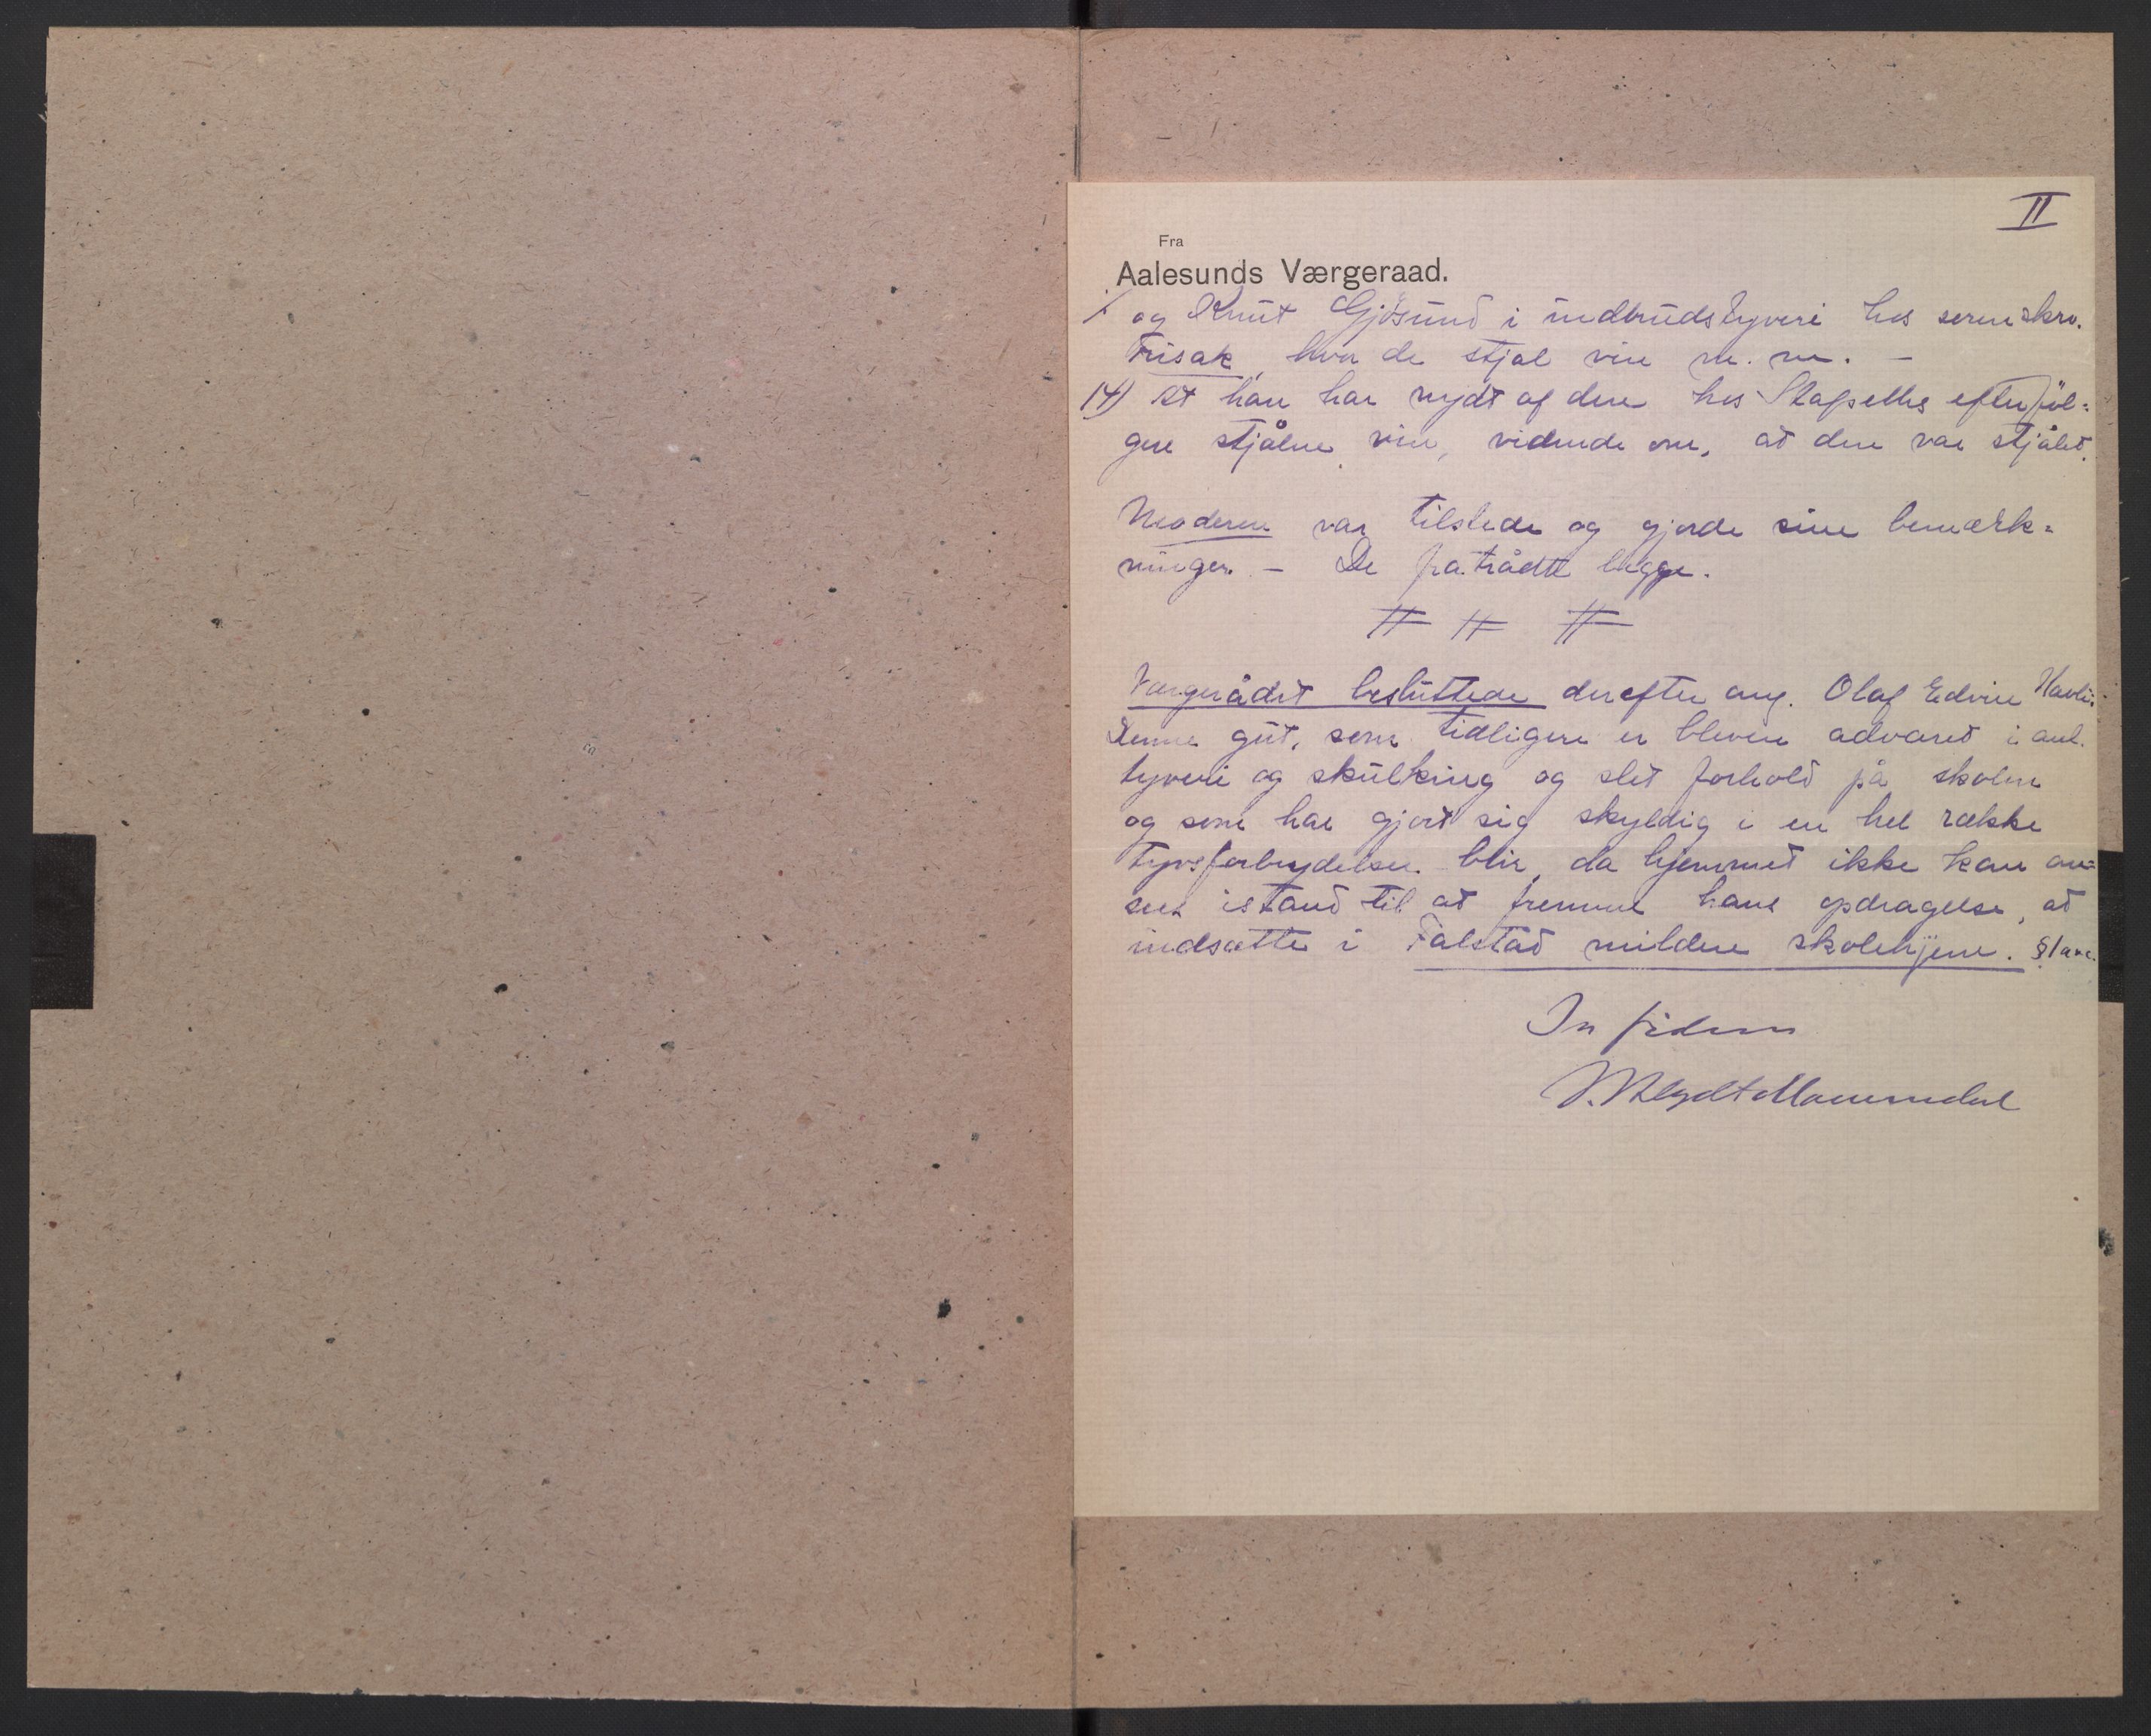 II
Fra
Aalesunds Værgeraad.
og Knut Gjøsund i indbrudstyveri hos sorenskrv.
Frisak, hvor de stjal vin m. m. –
14) At han har nydt af den hos Stafseths efterføl=
gere stjålne vin, vidende om, at den var stjålet.
Moderen var tilstede og gjorde sine bemærk=
ninger. – De fratrådte begge.
Værgerådet besluttede derefter ang. Olaf Edvin Havli:
Denne gut, som tidligere er bleven advaret i anl.
tyveri og skulking og slet forhold på skolen
og som har gjort sig skyldig i en hel række
tyvsforbrydelser blir, da hjemmet ikke kan an=
sees istand til at fremme hans opdragelse, at
indsætte i Falstad mildere skolehjem. § 1
In fidem